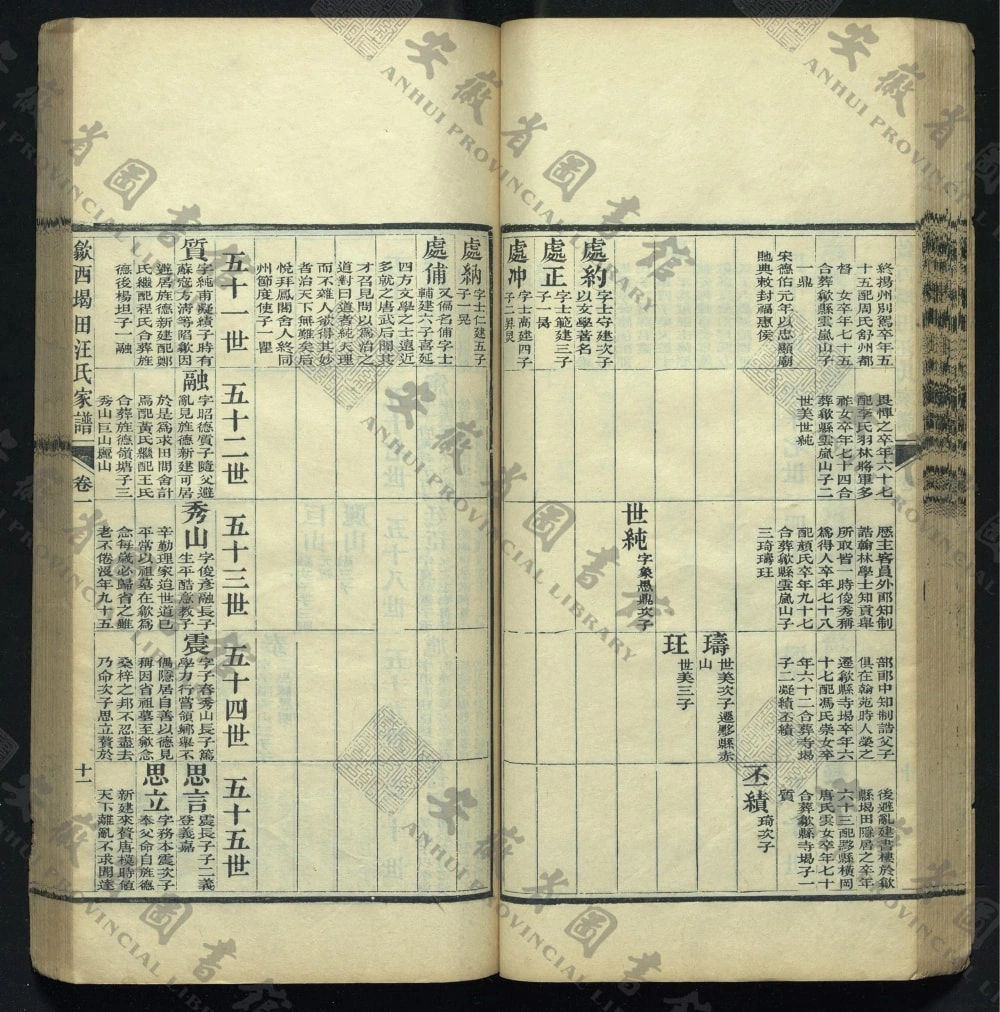 終揚州別駕卒年五
十五配周氏舒州都
督 女卒年七十五
合葬歙縣雲嵐山子
一鼎
宋德佑元年以忠顯廟
貤典敕封福惠侯
處約
字士守建次子
以女學著名
處正
字士範建三子
子一暠
處冲
字士高建四子
子二昇炅
畏憚之卒年六十七
配李氏羽林將軍多
祚女卒年七十四合
葬歙縣雲嵐山子二
世美世純
歷主客員外郎知制
誥翰林學士知貢舉
所取皆一時俊秀稱
爲得人卒年七十八
配頼氏卒年九十七
合葬歙縣雲嵐山子
三琦璹玨
世純
字象愚鼎次子
部郎中知制誥父子
俱在翰苑時人榮之
遷歙縣寺塲卒年六
十七配馮氏崇女卒
年六十二合葬寺塲
子二凝績丕績
璹
世美次子遷黟縣赤
山
玨
世美三子
後避亂建書樓於歙
縣塌田隱居之卒年
六十三配黟縣橫岡
唐氏雲女卒年七十
合葬歙縣寺塲子一
質
丕績
琦次子
處納
字士仁建五子
子一晃
處俌
又偁名俌字士
輔建六子喜延
四方文學之士遠近
多就之唐武后聞其
才召見問以爲治之
道對曰道者純天理
而不雜人欲得其妙
者治天下無難矣后
悅拜鳳閣舍人終同
州節度使子一瞿
五十一世
質
字純甫凝績子時有
蘇寇方清等陷歙因
避居旌德新建配鄭
氏繼配程氏合葬旌
德後楊坦子一融
五十二世
融
字昭德質子隨父避
亂見旌德新建可居
於是爲求田問舍計
焉配黃氏繼配王氏
合葬旌德嶺塘子三
秀山巨山麗山
五十三世
秀山
字俊彦融長子
生平酷意教子
辛勤理家追世道已
平常以祖墓在歙爲
念每歲必歸省之雖
老不倦沒年九十五
五十四世
震
字子春秀山長子篤
學力行嘗領鄉舉不
偶隱居自善以德見
稱因省祖墓至歙念
桑梓之邦不忍盡去
乃命次子思立贅於
五十五世
思言
震長子子二義
登義嘉
思立
字務本震次子
奉父命自旌德
新建來贅唐模時値
天下離亂不求聞達
歙西塌田汪氏家譜
卷一
十一
安徽省圖書館
ANHUI PROVINCIAL LIBRARY